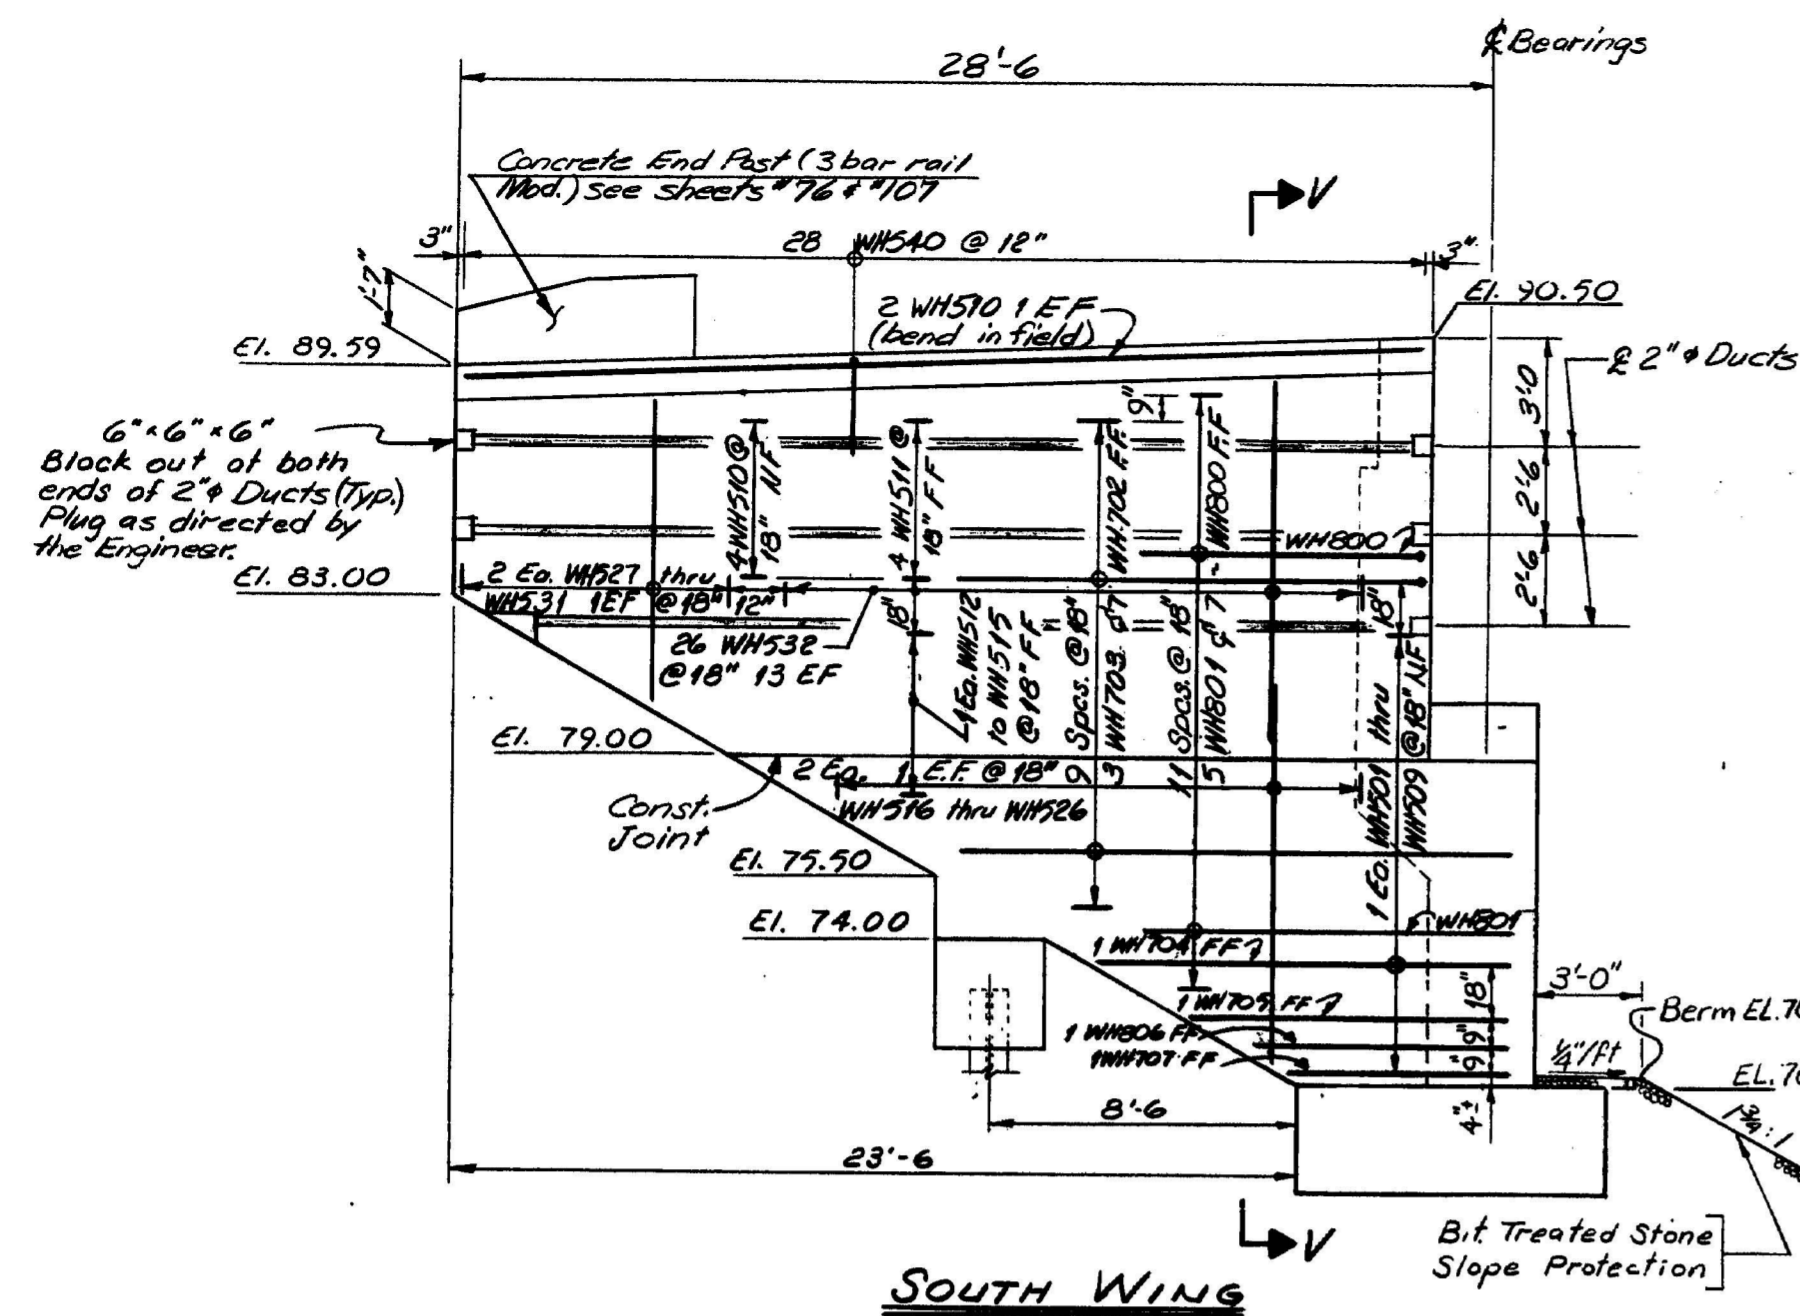 ℄ Bearings
28'-6
Concrete End Post (3 bar rail
Mod.) see sheets #76 & #107
V
3"
28 WH540 @ 12"
3"
1'-7"
El. 90.50
2 WH510 1 EF
(bend in field)
El. 89.59
℄ 2"φ Ducts
6"x6"x6"
Block out at both
ends of 2"φ Ducts (Typ.)
Plug as directed by
the Engineer.
9"
3'-0
2'-6
2'-6
4 WH510 @
18" NF
4 WH511 @
18" FF
9 Spcs. @ 18" WH702 FF.
3 WH703 & 7
11 Spcs. @ 18" WH800 F.F
5 WH801 & 7
WH800
El. 83.00
2 Ea. WH527 thru
WH531 1EF @ 18"
12"
18"
18"
26 WH532
@ 18" 13 EF
1 Ea. WH512
to WH515
@ 18" FF
1 Ea. WH501 thru
WH509 @ 18" NF
El. 79.00
2 Ea. 1 E.F. @ 18"
WH516 thru WH526
Const.
Joint
El. 75.50
El. 74.00
WH801
1 WH704 FF
1 WH705 FF
1 WH806 FF
1 WH707 FF
18"
9"
9"
4"±
3'-0"
Berm EL.
1/4"/ft
EL.
8'-6
23'-6
Bit. Treated Stone
Slope Protection
V
SOUTH WING